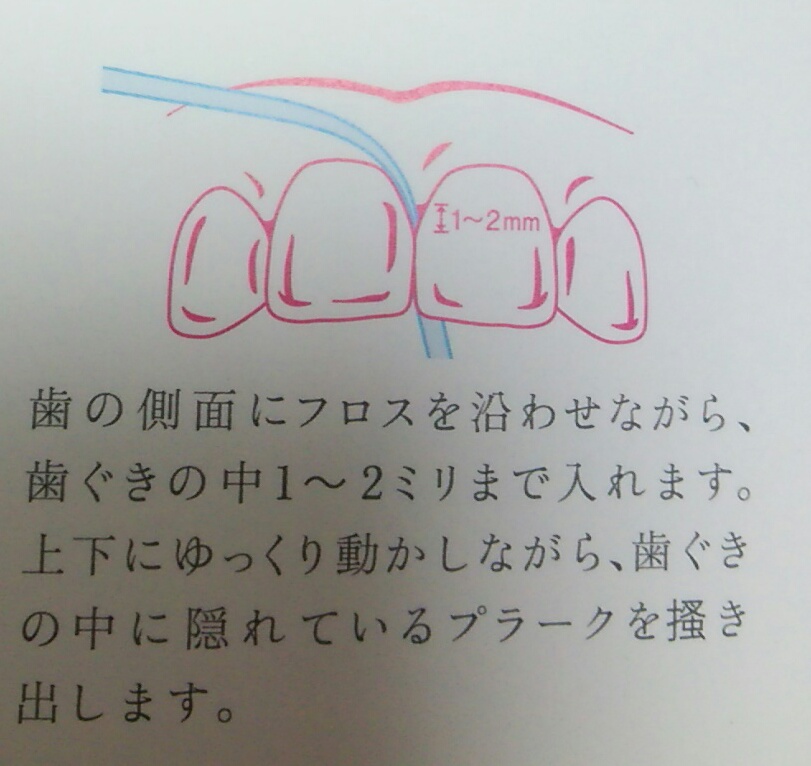 1～2mm
歯の側面にフロスを沿わせながら、
歯ぐきの中1～2ミリまで入れます。
上下にゆっくり動かしながら、歯ぐき
の中に隠れているプラークを掻き
出します。